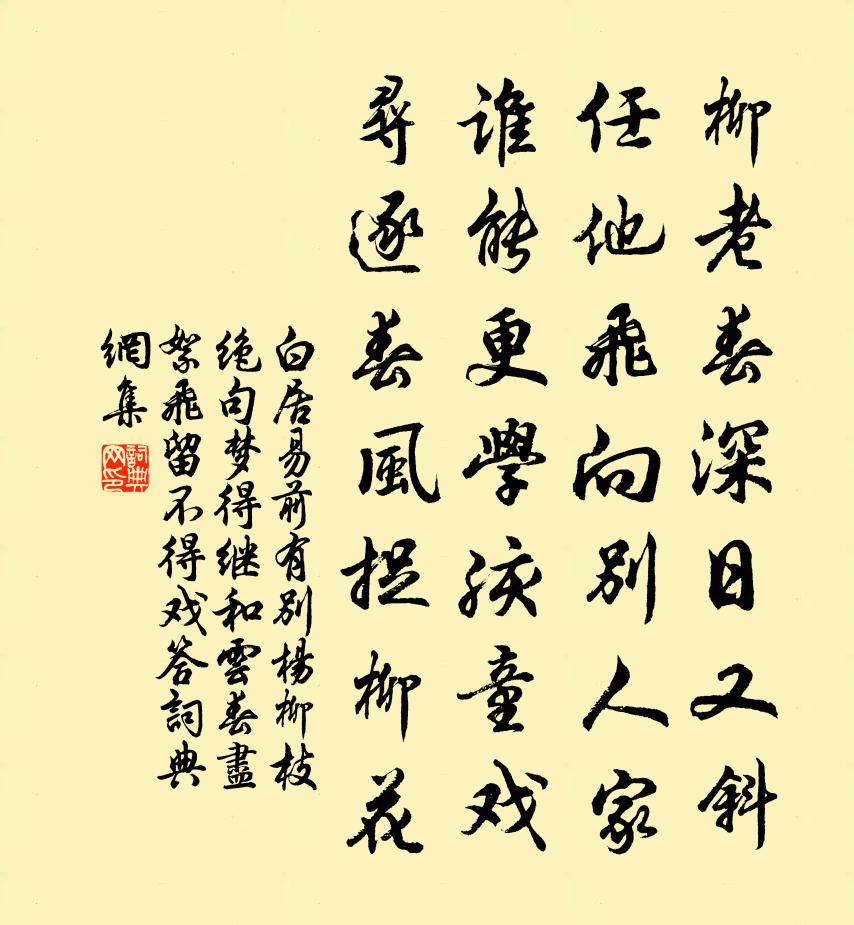 柳老春深日又斜
任他飛向别人家
谁能更學孩童戏
尋逐春風捉柳花
白居易前有别楊柳枝
绝句梦得继和雲春盡
絮飛留不得戏答詞典
網集
詞典
网印